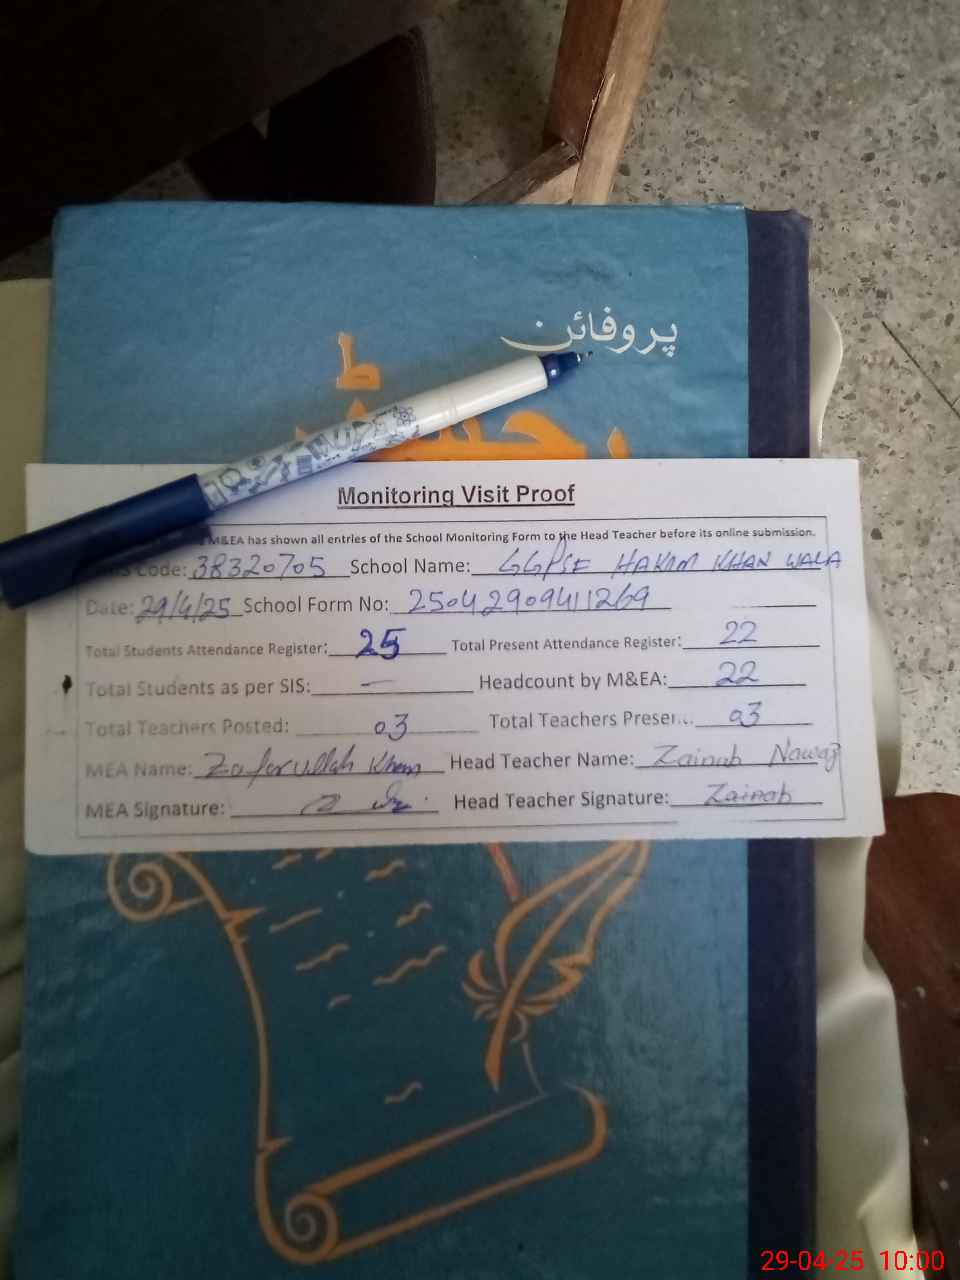 پروفائن
رجسٹر
Monitoring Visit Proof
M&EA has shown all entries of the School Monitoring Form to the Head Teacher before its online submission.
Code: 38320705 School Name: GGPSE HAKIM KHAN WALA
Date: 29/4/25 School Form No: 25042909411269
Total Students Attendance Register: 25 Total Present Attendance Register: 22
Total Students as per SIS: — Headcount by M&EA: 22
Total Teachers Posted: 03 Total Teachers Presen... 03
MEA Name: Zafarullah Khan Head Teacher Name: Zainab Nawaz
MEA Signature: Head Teacher Signature: Zainab
29-04-25 10:00